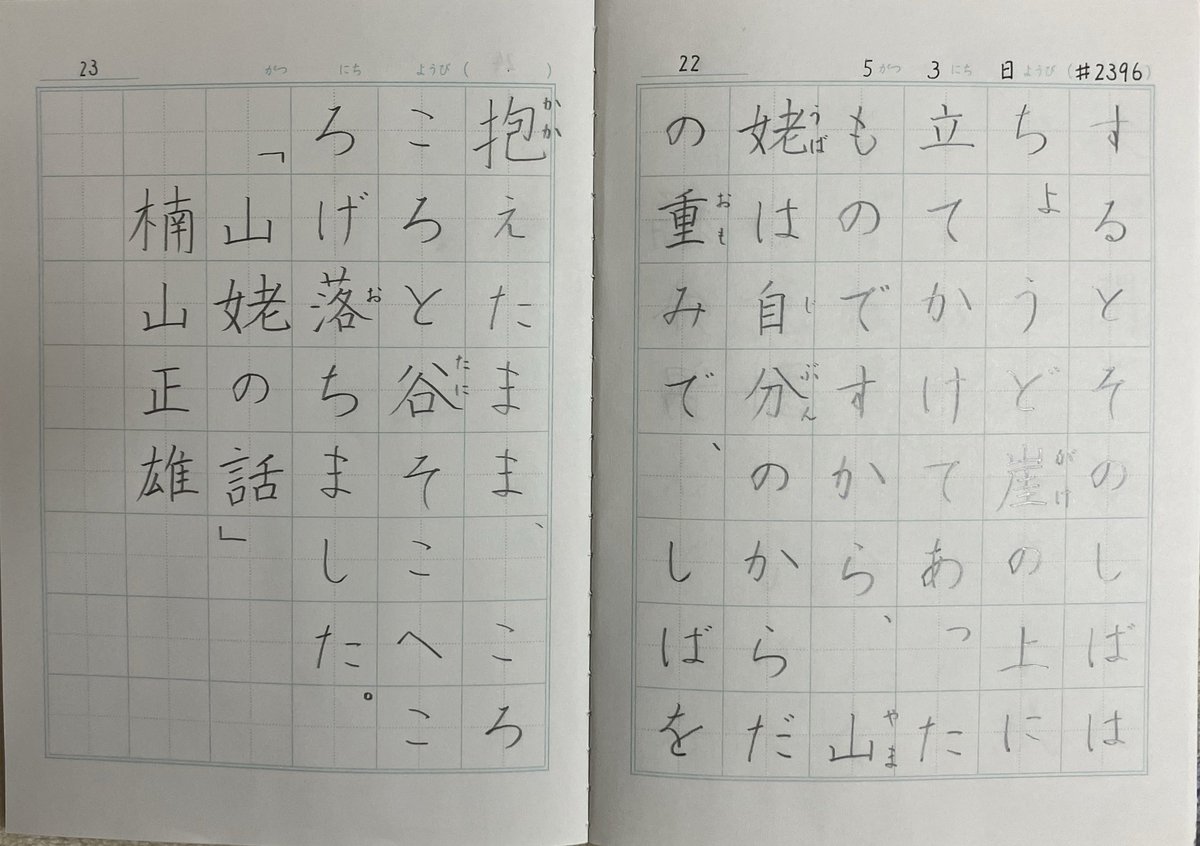 22 5がつ 3にち 日ようび(#2396)
するとそのしばは
ちょうど崖の上に
がけ
立てかけてあった
ものですから、山
やま
姥は自分のからだ
うば じぶん
の重みで、しばを
おも
23 がつ にち ようび( )
抱えたまま、ころ
かか
ころと谷そこへこ
たに
ろげ落ちました。
お
「山姥の話」
楠山正雄